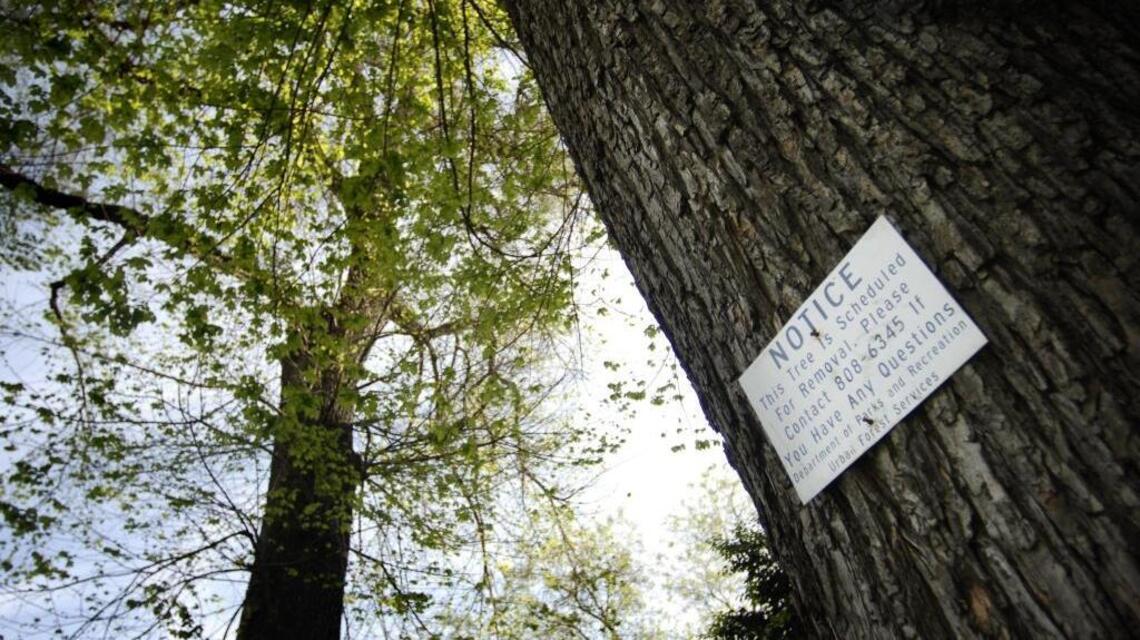 NOTICE
This Tree is Scheduled
For Removal. Please
Contact 808-6345 If
You Have Any Questions
Department of Parks and Recreation
Urban Forest Services